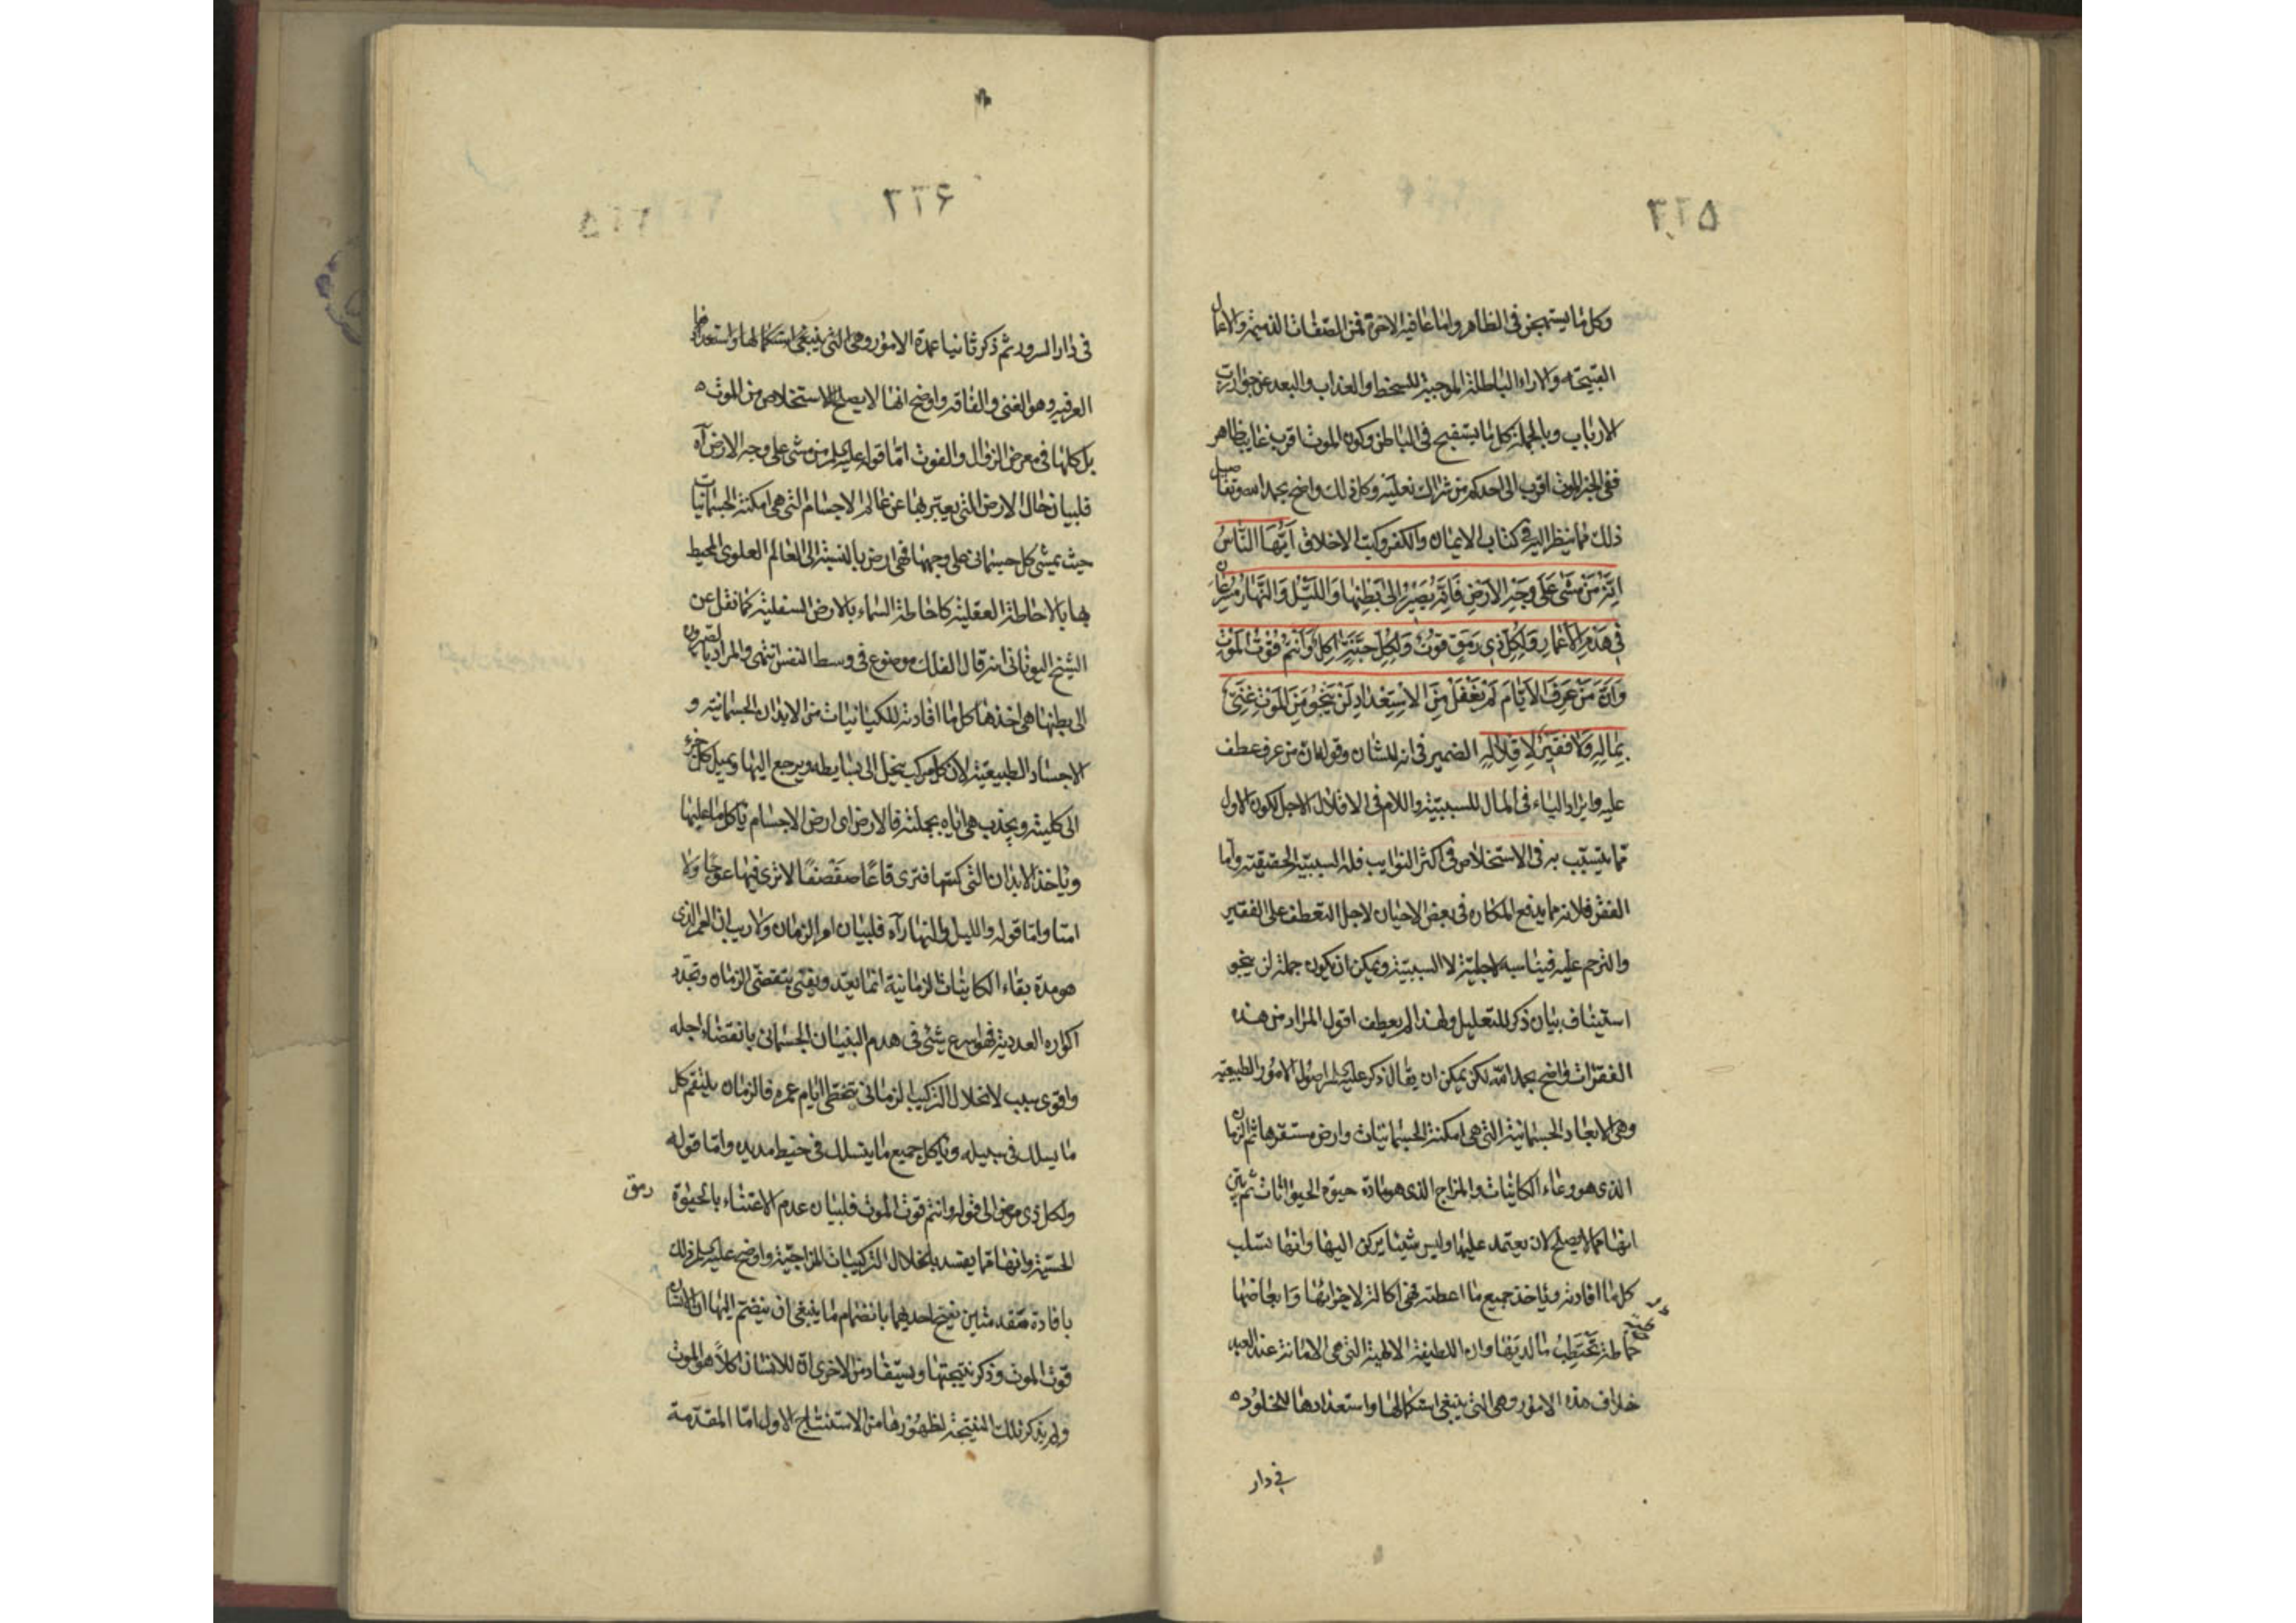 ٣٢٥
وكل ما يستهجن في الظاهر واما عافية الاخرة فمن الصفات الذميمة والاعمال
القبيحة والاراء الباطلة الموجبة للسخط والعذاب والبعد عن جوار رب
الارباب وبالجملة كل ما يستقبح في الباطن وكون الموت اقرب غايب ظاهر
ففي الخبر الموت اقرب الى احدكم من شراك نعليه وكل ذلك واضح بحمد الله وتفاصيل
ذلك مما ينظر اليه في كتاب الايمان والكفر وكتب الاخلاق ايّها النّاس
انّه من مشى على وجه الارض فانّه يصير الى بطنها والليل والنهار مسرعان
في هدم الاعمار ولكل ذي رمق قوت ولكل حبّة اكل وانتم قوت الموت
وانّ من عرف الايّام لم يغفل من الاستعداد لن ينجو من الموت غنيّ
بماله ولا فقير لاقلاله الضمير في انه للشان وقوله ان من عرف عطف
عليه وايراد الباء في المال للسببية واللام في الاقلال لاجل لكون الاول
مما يتسبّب به في الاستخلاص في اكثر النوايب فله السببية الحقيقية واما
الفقر فلانه مما يدفع المكاره في بعض الاحيان لاجل التعطف على الفقير
والترحم عليه فيناسبه لاجلية لا السببية ويمكن ان يكون جملة لن ينجو
استيناف بيان ذكر للتعليل ولهذا لم يعطف اقول المراد من هذه
الفقرات واضح بحمد الله لكن يمكن ان يقال ذكر عليه السلام اصول الامور الطبيعية
وهي الابعاد الجسمانية التي هي امكنة الجسمانيات وارض مستقرها ثم الزمان
الذي هو وعاء الكائنات والمزاج الذي هو مادة حيوة الحيوانات ثم بين
انها مما لا يصلح لان يعتمد عليها وليس شيئا يركن اليها وانها تسلب
كل ما افادته وتاخذ جميع ما اعطته فهي اكالة لاجزائها وابعاضها
تختطب ما لديها وان اللطيفة الالهية التي هي الامانة عند العبد
خلاف هذه الامور وهي التي ينبغي استكمالها واستعدادها للخلود
في دار
٣٢٦
في دار السرور ثم ذكر ثانيا عمدة الامور وهي التي ينبغي استكمالها واستعدادها
العرفية وهو الغنى والفاقة واوضح انها لا يصلح للاستخلاص من الموت
بل كلها في معرض الزوال والفوت امّا قوله عليه السلام من مشى على وجه الارض آه
فلبيان حال الارض التي يعبّر بها عن عالم الاجسام التي هي امكنة الجسمانيات
حيث يمشي كل جسماني على وجهها فهي ارض بالنسبة الى العالم العلوي المحيط
بها بالاحاطة العقلية كاحاطة السماء بالارض السفلية كما نقل عن
الشيخ اليوناني انه قال الفلك موضوع في وسط النفس انتهى والمراد بالصيرورة
الى بطنها هي اخذها كل ما افادته للكيانيات من الابدان الجسمانية و
الاجساد الطبيعية لان كل مركب ينحل الى بسايطه ويرجع اليها ويميل كل جزء
الى كليته ويجذب هي اياه بجملته فالارض اي ارض الاجسام تاكل ما عليها
وتاخذ الابدان التي كستها فترى قاعًا صفصفًا لا ترى فيها عوجًا ولا
امتا وامّا قوله والليل والنهار آه فلبيان امر الزمان ولا ريب ان العمر الذي
هو مدة بقاء الكاينات الزمانية انما يعدّ ويفنى بتقضّى الزمان وتجدّد
اكواره العددية فهو اسرع شئ في هدم البنيان الجسماني بانقضاء اجله
واقوى سبب لانحلال التركيب الزماني بتخطى ايام عمره فالزمان يلتقم كل
ما يسلك في سبيله وياكل جميع ما ينسلك في خيط مديده وامّا قوله
ولكل ذي رمق الى قوله وانتم قوت الموت فلبيان عدم الاعتناء بالحيوة
رمق
الحسيّة وانها مما يفسد بانحلال التركيبات المزاجيّة واوضح عليه السلام ذلك
بافادة مقدمتين نتيج احديهما بانضمام ما ينبغي ان ينضم اليها ان الانسان
قوت الموت وذكر نتيجتها ويستفاد من الاخرى ان للانسان اكلاً هو الموت
ولم يذكر تلك النتيجة لظهورها من الاستنتاج الاول امّا المقدّمة